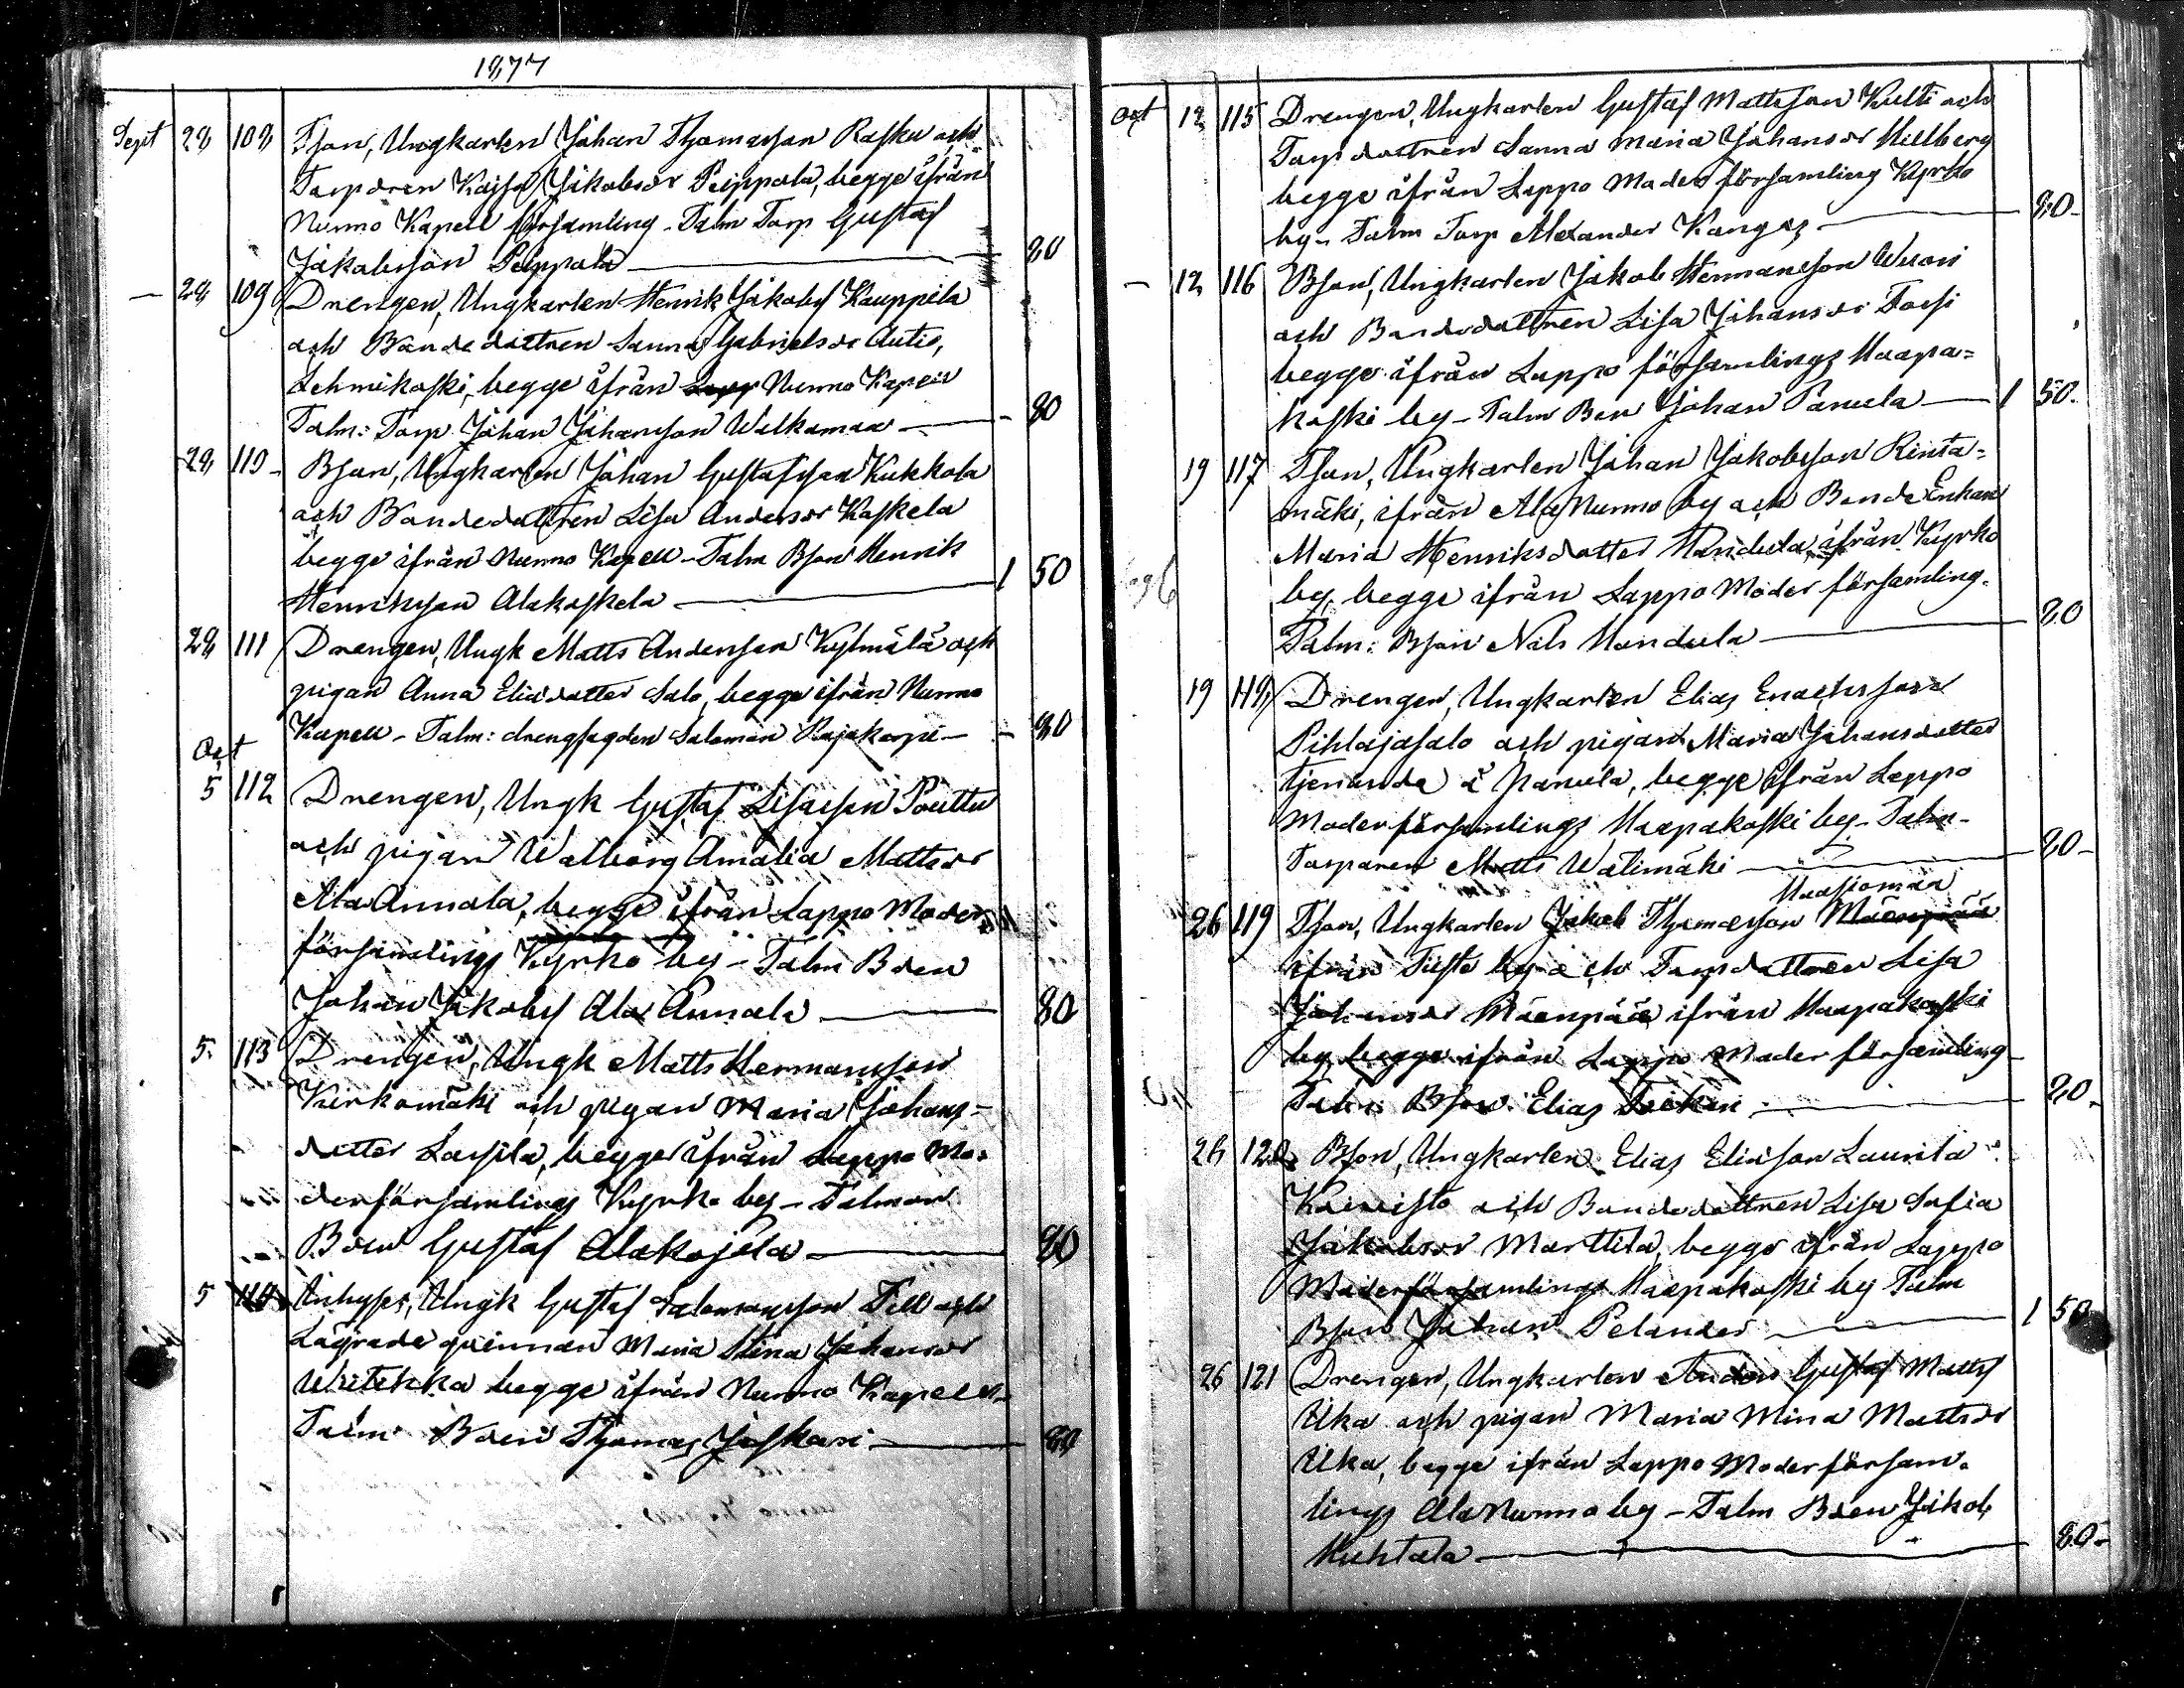 1877
Sept 28 108 Tson, Ungkarlen Johan Thomasson Rasku och
Torpdren Kajsa Jakobsdr Peippola, begge ifrån
Nurmo Kapell församling - Talm Torp Gustaf
Jakobsson Peippola — 80
— 28 109 Drengen, Ungkarlen Henrik Jakobss Kauppila
och Bondedottren Sanna Gabrielsdr Autio,
begge ifrån Nurmo Kapell
Talm: Torp Johan Johansson Walkamaa — 80
28 110 Bson, Ungkarlen Johan Gustafsson Kukkola
och Bondedottren Lisa Andersdr Koskela
begge ifrån Nurmo Kapell - Talm Bson Henrik
Henriksson Alakoskela — 1 50
28 111 Drengen, Ungk Matts Andersson Kylmälä och
pigan Anna Eliædotter Salo, begge ifrån Nurmo
Kapell - Talm: drengfogden Salomon Rajakorpi — 80
Oct
5 112 Drengen, Ungk Gustaf Lisasson Pouttu
och pigan Walborg Amalia Mattsdr
Ala Annala, begge ifrån Lappo Moder
församlings Kyrko by - Talm Bden
Johan Jakobss Ala Annala — 80
5 113 Drengen, Ungk Matts Hermansson
Kirkomäki och pigan Maria Johans-
dotter Lassila, begge ifrån Lappo Mo-
derförsamlings Kyrko by - Talman
Bden Gustaf Alakojola — 80
5 114 Inhyses, Ungk Gustaf Salomonsson Till och
Lägrade qvinnan Maria Stina Johansdr
begge ifrån Nurmo Kapell -
Talm Bden Thomas Joskari — 80
Oct 12 115 Drengen, Ungkarlen Gustaf Mattsson Kulti och
Torpdottren Sanna Maria Johansdr Hillberg
begge ifrån Lappo Moder församling Kyrko
by - Talm Torp Alexander Kangas — 80 -
— 12 116 Bson, Ungkarlen Jakob Hermansson
och Bondedottren Lisa Johansdr
begge ifrån Lappo församlings Haapa=
koski by - Talm Bden Johan Panula — 1 50.
19 117 Tson, Ungkarlen Johan Jakobsson Rinta=
mäki, ifrån Ala Nurmo by och Bonde Enkan
Maria Henriksdotter Handula, ifrån Kyrko
by, begge ifrån Lappo Moder församling.
Talm: Bson Nils Handula — 80
19 118 Drengen, Ungkarlen Elias Enochsson
Pihlajasalo och pigan Maria Johansdotter
tjenande å Panula, begge ifrån Lappo
Moderförsamlings Haapakoski by - Talm -
Torparen Matts Wälimäki — 80 -
Haasiomaa
26 119 Tson, Ungkarlen Jakob Thomasson Mäenpää
ifrån Tiisto by och Torpdottren Lisa
Johansdr Mäenpää ifrån Haapakoski
by, begge ifrån Lappo Moder församling -
Talm Bson Elias — 80 -
26 120 Bson, Ungkarlen Elias Eliasson Laurila
Koivisto och Bondedottren Lisa Sofia
Jakobsdr Marttila, begge ifrån Lappo
Moderförsamlings Haapakoski by Talm
Bson Johan Pelander — 1 50
26 121 Drengen, Ungkarlen Anders Gustaf Mattss
Uka och pigan Maria Mina Mattsdr
Uka, begge ifrån Lappo Moderförsam-
lings Ala Nurmo by - Talm Bden Jakob
Huhtala — 80 -